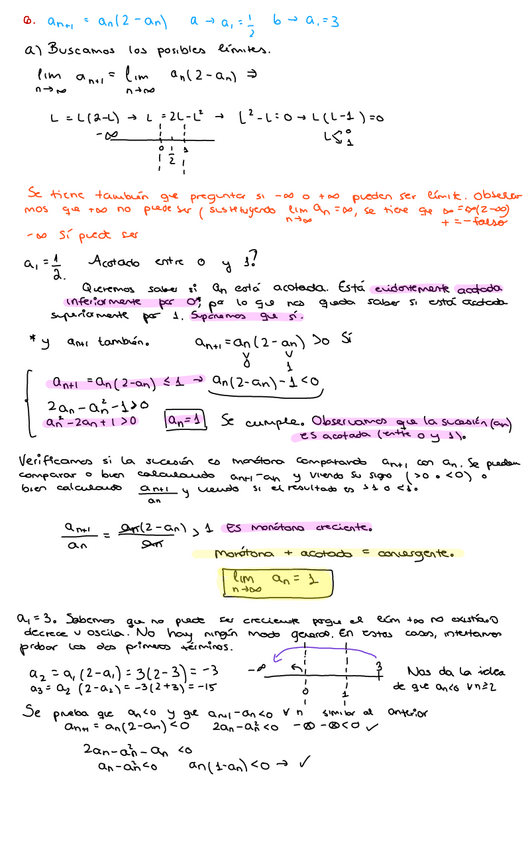 8. aₙ₊₁ = aₙ(2-aₙ)   a → a₁=1/2   b → a₁=3
a) Buscamos los posibles límites.
lim aₙ₊₁ = lim aₙ(2-aₙ) ⇒
n→∞   n→∞
L = L(2-L) → L = 2L-L² → L²-L=0 → L(L-1)=0
L 0 1
-∞
0 1/2 1
Se tiene también que preguntar si -∞ o +∞ pueden ser límite. Observa
mos que +∞ no puede ser (sustituyendo lim aₙ=∞, se tiene que ∞=∞(2-∞)
n→∞   + = - falso
-∞ Sí puede ser
a₁=1/2. Acotado entre 0 y 1?
Queremos saber si aₙ está acotada. Está evidentemente acotada
inferiormente por 0, por lo que nos queda saber si está acotada
superiormente por 1. Suponemos que sí.
* y aₙ₊₁ también.   aₙ₊₁=aₙ(2-aₙ) >0 Sí
aₙ₊₁ = aₙ(2-aₙ) ≤ 1 → aₙ(2-aₙ)-1<0
2aₙ-aₙ²-1>0
aₙ²-2aₙ+1>0   aₙ=1   Se cumple. Observamos que la sucesión (aₙ)
es acotada (entre 0 y 1).
Verificamos si la sucesión es monótona comparando aₙ₊₁ con aₙ. Se pueden
comparar o bien calculando aₙ₊₁-aₙ y viendo su signo (>0 o <0) o
bien calculando aₙ₊₁/aₙ y viendo si el resultado es >1 o <1.
aₙ₊₁/aₙ = aₙ(2-aₙ)/aₙ > 1 es monótona creciente.
Monótona + acotado = convergente.
lim aₙ = 1
n→∞
a₁=3. Sabemos que no puede ser creciente porque el lím +∞ no existía. O
decrece u oscila. No hay ningún modo general. En estos casos, intentamos
probar los dos primeros términos.
a₂ = a₁(2-a₁) = 3(2-3) = -3
a₃ = a₂(2-a₂) = -3(2+3) = -15
-∞   0   1   3
Nos da la idea
de que aₙ<0 ∀n≥2
Se prueba que aₙ<0 y que aₙ₊₁-aₙ<0 ∀n similar al anterior
aₙ₊₁ = aₙ(2-aₙ)<0   2aₙ-aₙ²<0   -∞-∞<0 ✓
2aₙ-aₙ²-aₙ <0
aₙ-aₙ²<0   aₙ(1-aₙ)<0 → ✓